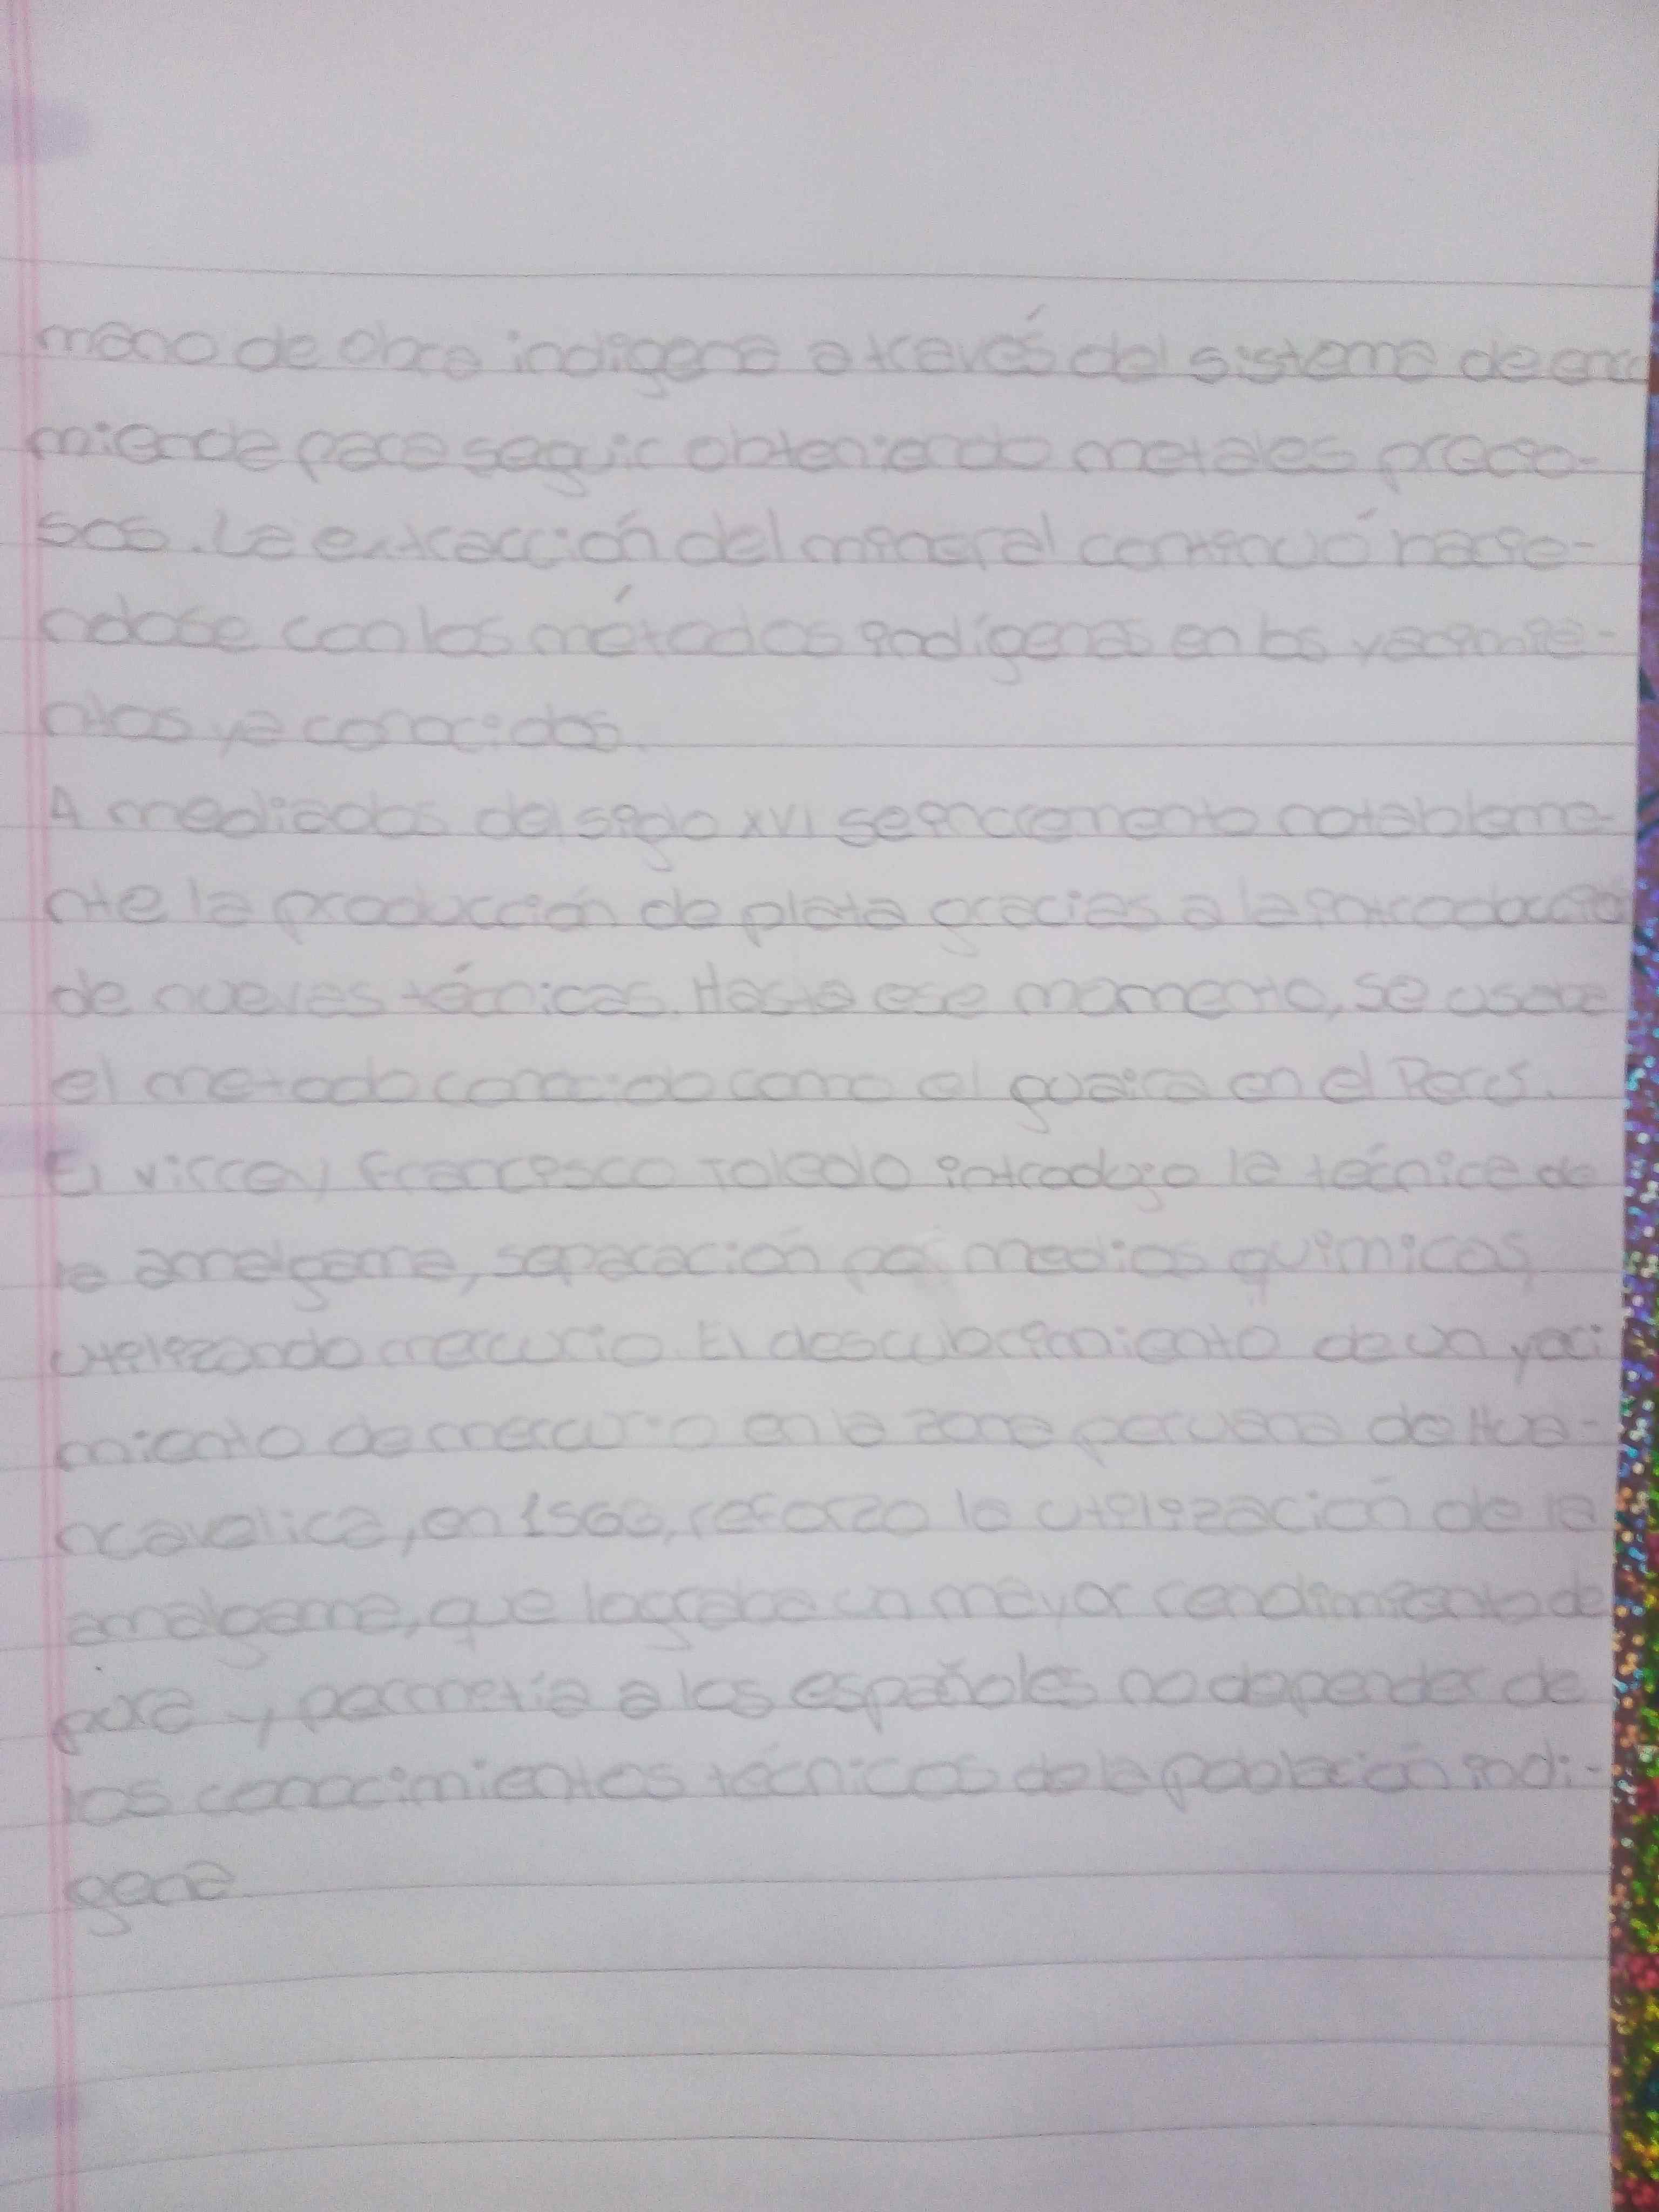 mano de obra indigena a través del sistema de enco
mienda para seguir obteniendo metales precio-
sos. La extracción del mineral continuó hacie-
ndose con los métodos indígenas en los yacimie-
ntos ya conocidos.
A mediados del siglo XVI se incremento notableme-
nte la producción de plata gracias a la introducció
de nuevas técnicas. Hasta ese momento, se usaba
el metodo conocido como el guaira en el Perú.
El virrey Francisco Toledo introdujo la técnica de
la amalgama, separación por medios quimicos,
utilizando mercurio. El descubrimiento de un yaci
miento de mercurio en la zona peruana de Hua-
ncavelica, en 1566, reforzo la utilización de la
amalgama, que lograba un mayor rendimiento de
pura y permetía a los españoles no depender de
los conocimientos técnicos de la población indi-
gena